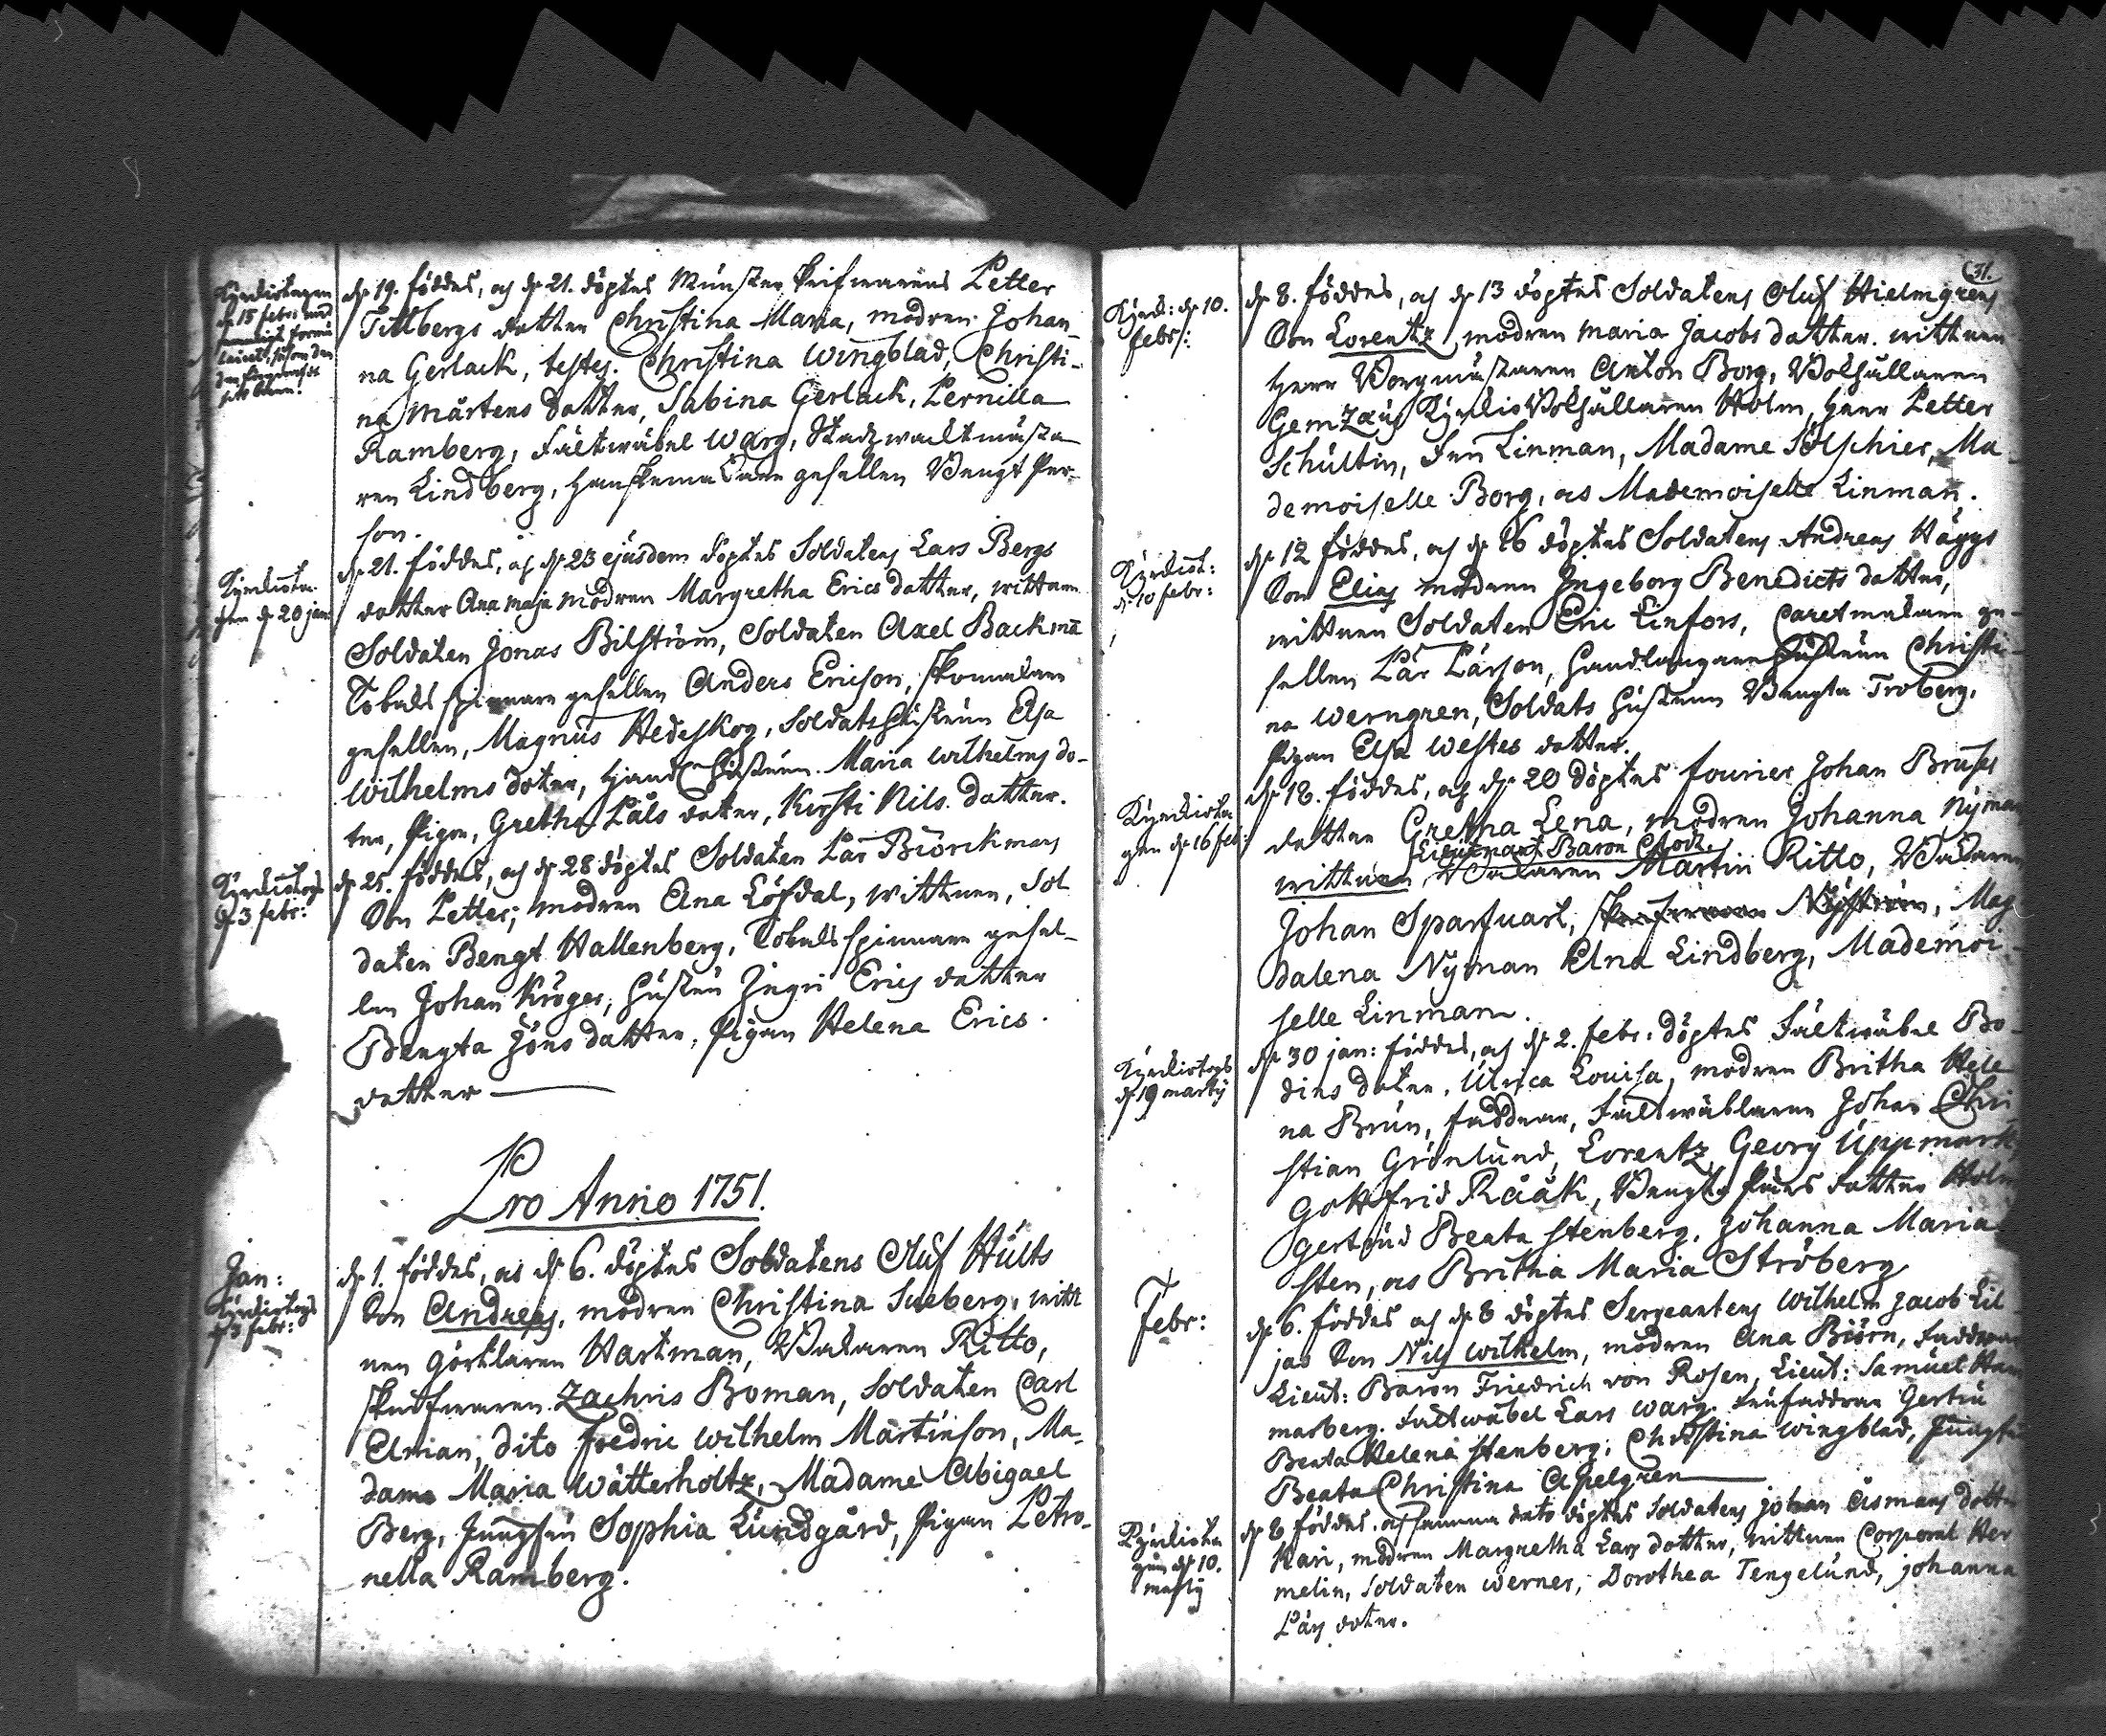 Kyrckotagen
d. 15 febr:
d. 19. föddes, och d. 21. döptes Munsterskrifwarens Petter
Tittbergs dotter Christina Maria, modren Johan-
na Gerlack, testes. Christina Wingblad, Christi-
na Mårtens dotter, Sabina Gerlack, Pernilla
Ramberg, Fältwäbel Warg, Stadzwacktmästa
ren Lindberg, Handskemakare gesellen Bengt Per-
son.
Kyrckota-
gen d. 20 jan:
d. 21. föddes, och d. 23 ejusdem döptes Soldatens Lars Bergs
dotter Ana Maja modren Margretha Erics dotter, wittnen
Soldaten Jonas Bilström, Soldaten Axel Backmā
Tobakspinnare gesellen Anders Ericson, skomakare
gesellen, Magnus Hedeskog, Soldatshustrun Elsa
Wilhelms doter, hustrun Maria Wilhelms do-
ter, Pigan, Gretha Påls doter, Kirsti Nils dotter.
Kyrckotogs
d. 3 febr:
d. 25. föddes, och d. 28 döptes Soldaten Pär Biörckmans
Son Petter; modren Ana Löfdal, wittnen, Sol
daten Bengt Hallenberg, Tobakspinnare gesel-
len Johan Kröger, hustru Ingri Erics dotter
Bengta Jöns dotter, Pigan Helena Erics
dotter
Pro Anno 1751.
Jan:
Kyrckotogs
d. 3 febr:
d. 1. föddes, och d. 6. döptes Soldatens Oluf Hults
Son Andreas, modren Christina Sueberg, witt
nen Görtlaren Hartman, Bakaren Ritto,
Skrifwaren Zachris Boman, Soldaten Carl
Elman, dito Fredric Wilhelm Martinson, Ma-
dame Maria Wätterholtz, Madame Abigael
Berg, Jungfru Sophia Lundgård, Pigan Petro-
nella Ramberg.
31.
Kyrck: d. 10.
febr:
d. 8. föddes, och d. 13 döptes Soldatens Oluf Hielmgrens
Son Lorentz, modren Maria Jacobs dotter. wittnen
Herr Borgmästaren Anton Borg, Bokhållaren
Gemzæus Bokhållaren Holm, Herr Petter
Schultin, Fru Linman, Madame Sölschier, Ma-
demoiselle Borg, och Mademoiselle Linman.
Kyrckot:
d. 10 febr:
d. 12 föddes, och d. 16 döptes Soldatens Andreas Häggs
Son Elias modren Ingeborg Benedicts dotter,
wittnen Soldaten Eric Linfors, Caretmakare ge-
sellen Pär Pärson, Handlangare hustrun Christi-
na Werngren, Soldats hustrun Bengta Troberg,
Pigan Elsa Westes dotter.
Kyrckota
gen d. 16 feb:
d. 18. föddes, och d. 20 döptes fourier Johan Bruses
dotter Gretha Lena, modren Johanna Nyman
Lieutenant Baron Clodt.
wittnen, Bakaren Martin Ritto, Bakaren
Johan Sparfuart, Skrifwaren Nyström, Mag
dalena Nyman Elna Lindberg, Mademoi-
selle Linman.
Kyrckotogs
d. 19 martij
d. 30 jan: föddes, och d. 2. febr: döptes Fältwäbel Bo-
dins doter, Ulrica Louisa, modren Britha Hele
na Brun, faddrar, Fältwäblarne Johan Chri
stian Grönlund, Lorentz Georg Uppmark,
Gottfrid Rååk, Bengta Pärs dotter Holm
Gertrud Beata Stenberg, Johanna Maria
Sten, och Britha Maria Ströberg
Febr:
d. 6. föddes och d. 8 döptes Sergeantens Wilhelm Jacob Lil-
jas Son Nils Wilhelm, modren Ana Biörn, faddrar
Lieut: Baron Friedrich von Rosen, Lieut: Samuel Ham
marberg. Fältwäbel Lars Warg. Frufaddrar Gertru
Beata Helena Stenberg, Christina Wingblad, Jungfru
Beata Christina Apelgren
Kyrckota
gen d. 10.
martij
d. 8 föddes, och samma dato döptes Soldatens Johan Åsmans dotter
Kari, modren Margretha Lars dotter, wittnen Corporal Her
melin, Soldaten Werner, Dorothea Tengelund, Johanna
Pärs doter.